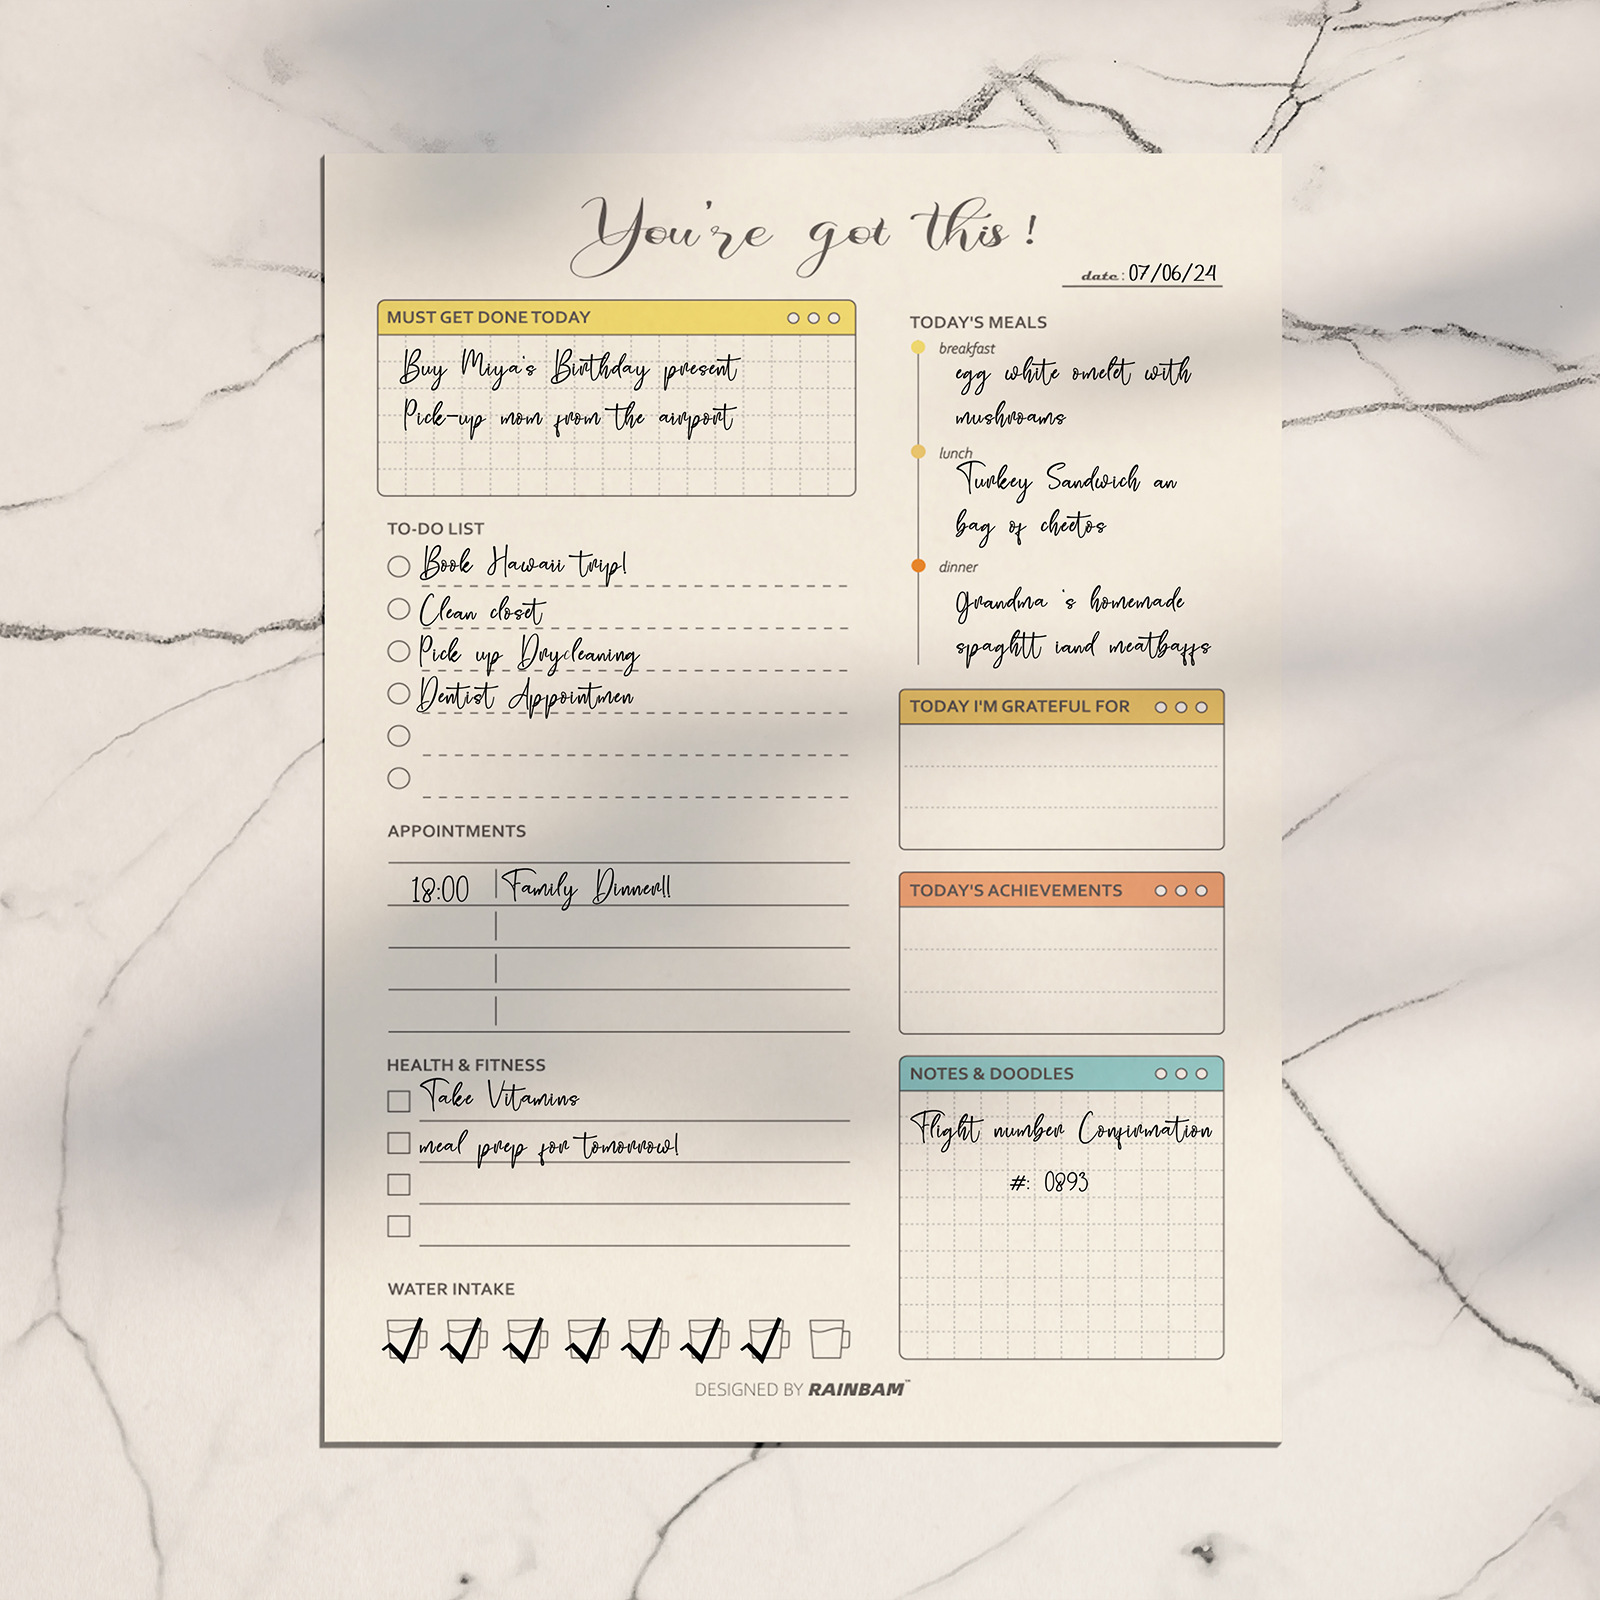 You're got this!
date: 07/06/24
MUST GET DONE TODAY
Buy Miya's Birthday present
Pick-up mom from the airport
TO-DO LIST
Book Hawaii trip!
Clean closet
Pick up Drycleaning
Dentist Appointmen
APPOINTMENTS
18:00 Family Dinner!!
HEALTH & FITNESS
Take Vitamins
meal prep for tomorrow!
WATER INTAKE
TODAY'S MEALS
breakfast
egg white omelet with
mushroams
lunch
Turkey Sandwich an
bag of cheetos
dinner
Grandma 's homemade
spaghtt iand meatbaffs
TODAY I'M GRATEFUL FOR
TODAY'S ACHIEVEMENTS
NOTES & DOODLES
Flight number Confirmation
#: 0893
DESIGNED BY RAINBAM™